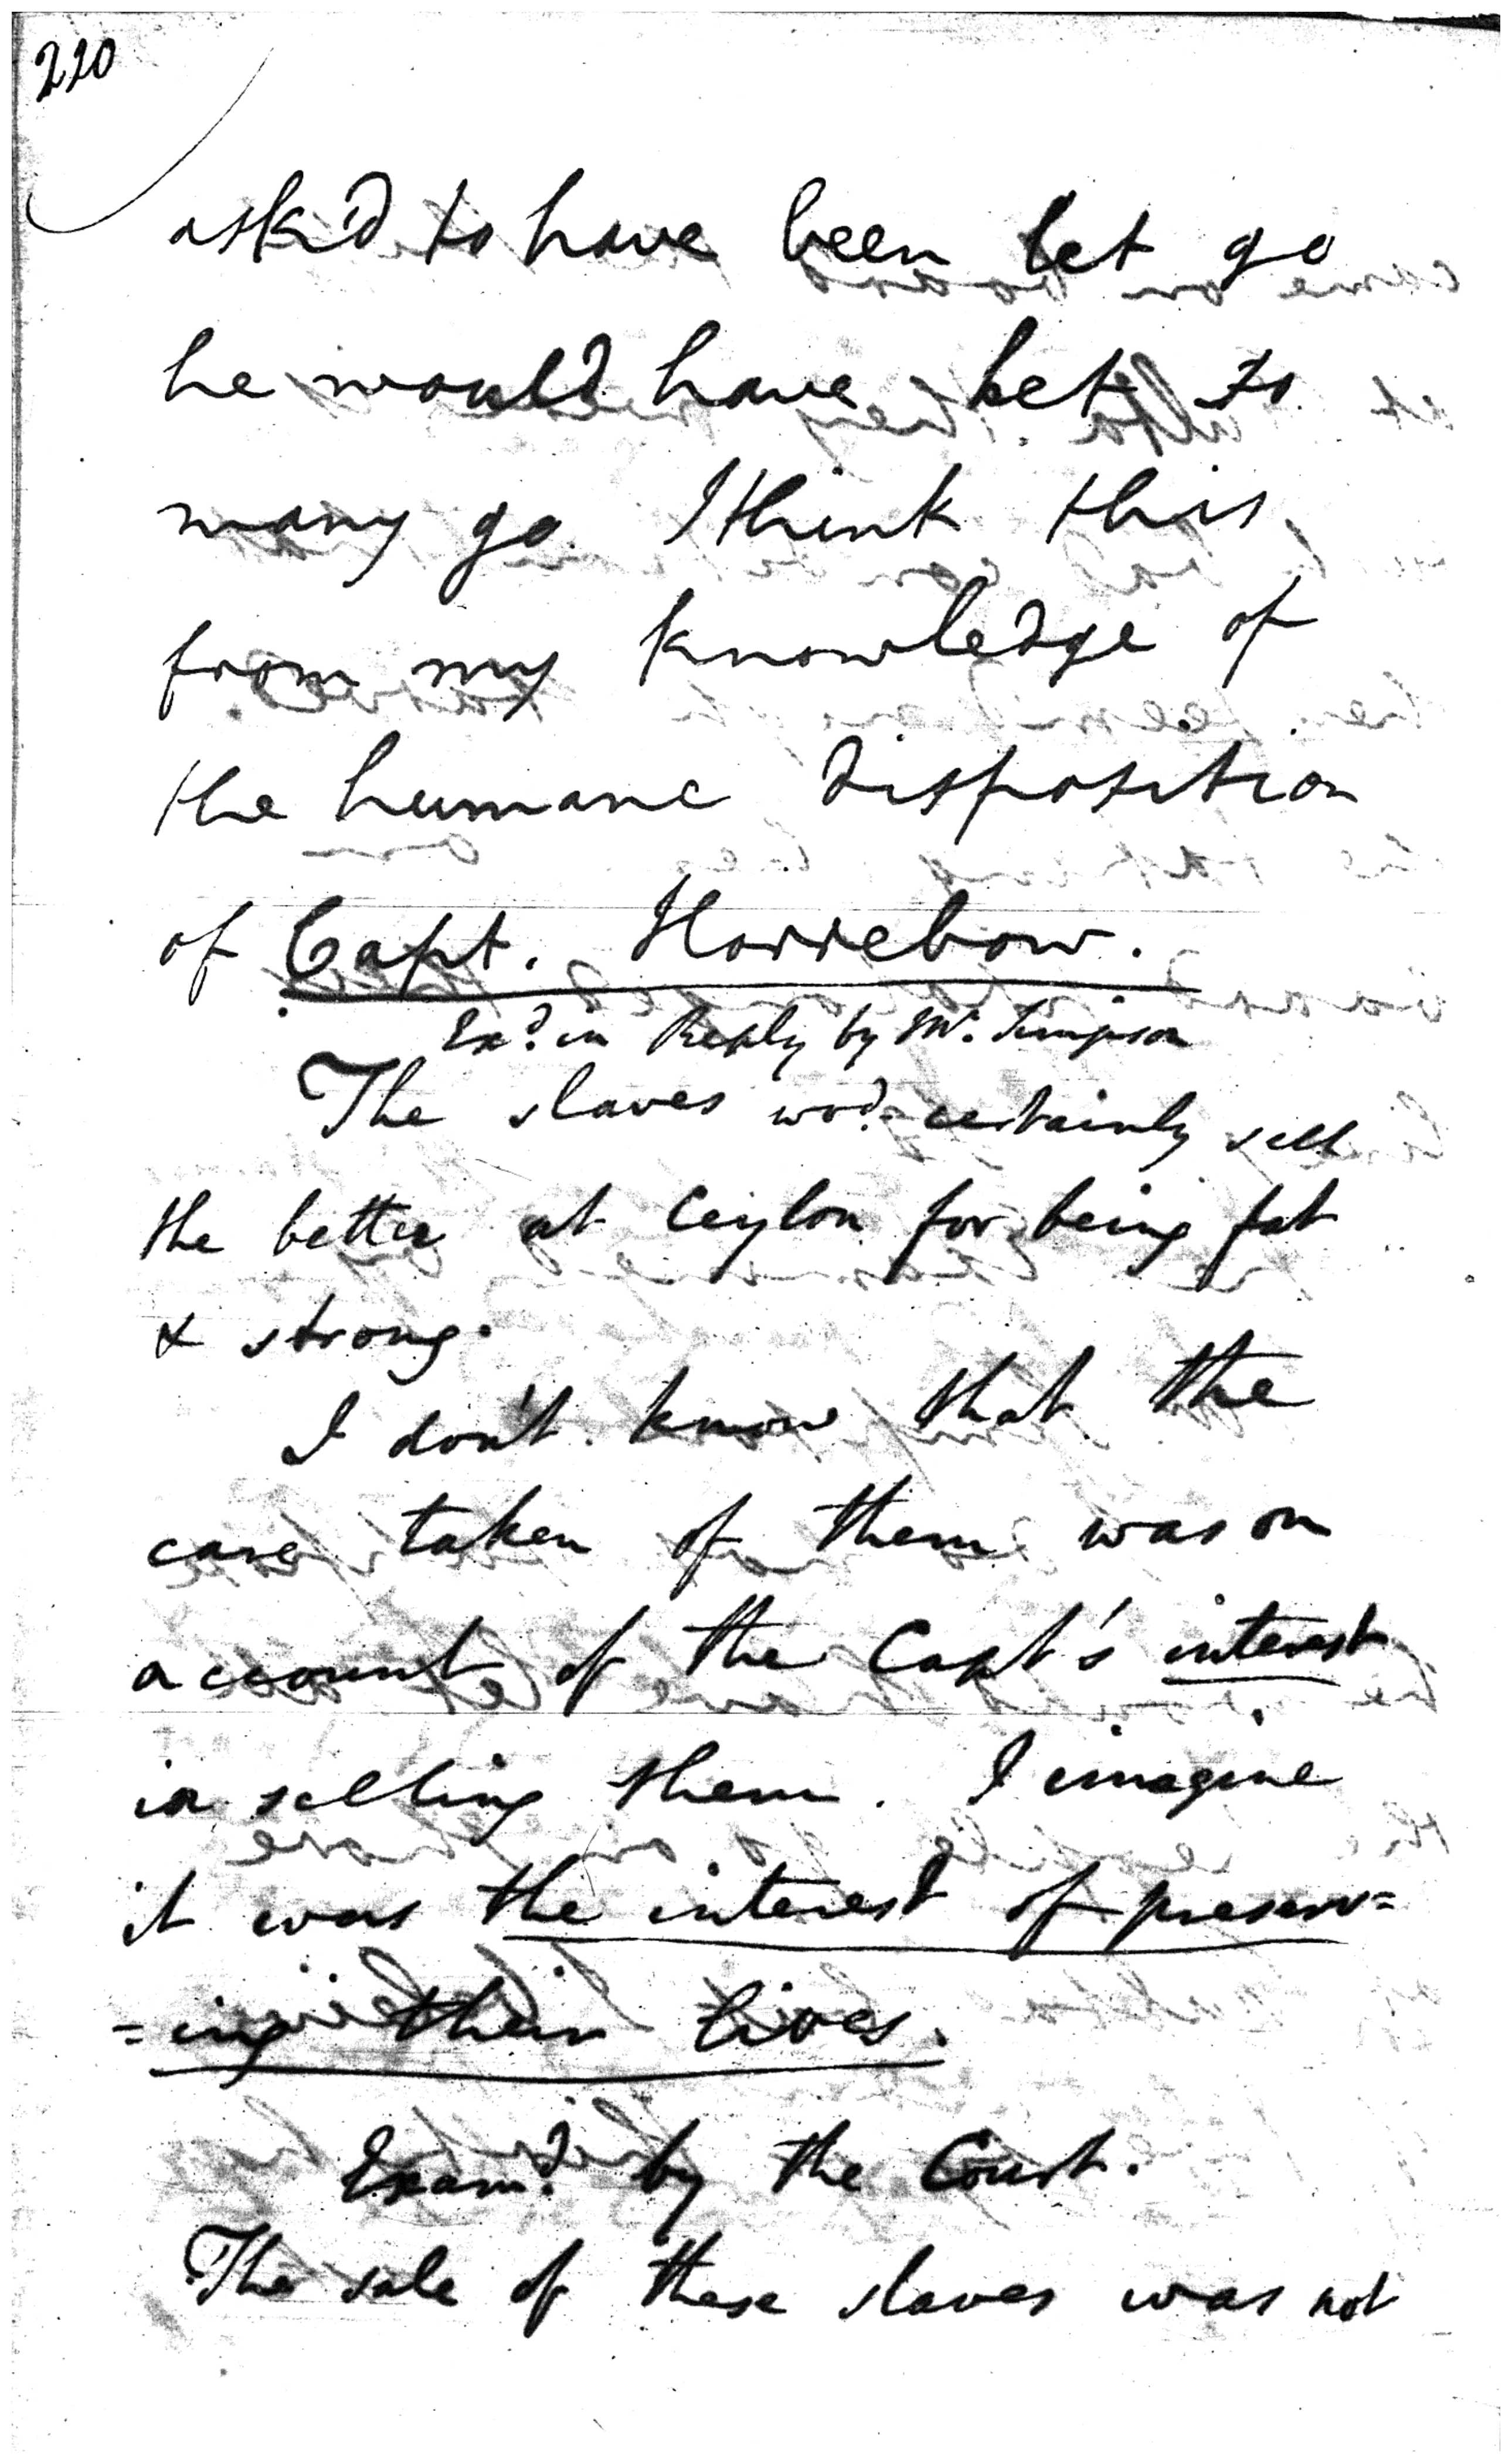 220
ask'd to have been let go
he would have let so
many go I think this
from my knowledge of
the humane disposition
of Capt. Horrebow.
Exd. in Reply by Mr. Simpson
The slaves wod. certainly sell
the better at Ceylon for being fat
& strong.
I don't know that the
care taken of them was on
account of the Capt's interest
in selling them. I imagine
it was the interest of preserv=
=ing their lives.
Examd. by the Court.
The sale of these slaves was not